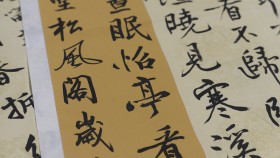 看不歸
曉見寒溪
晝眠怡亭看
松風閣歲